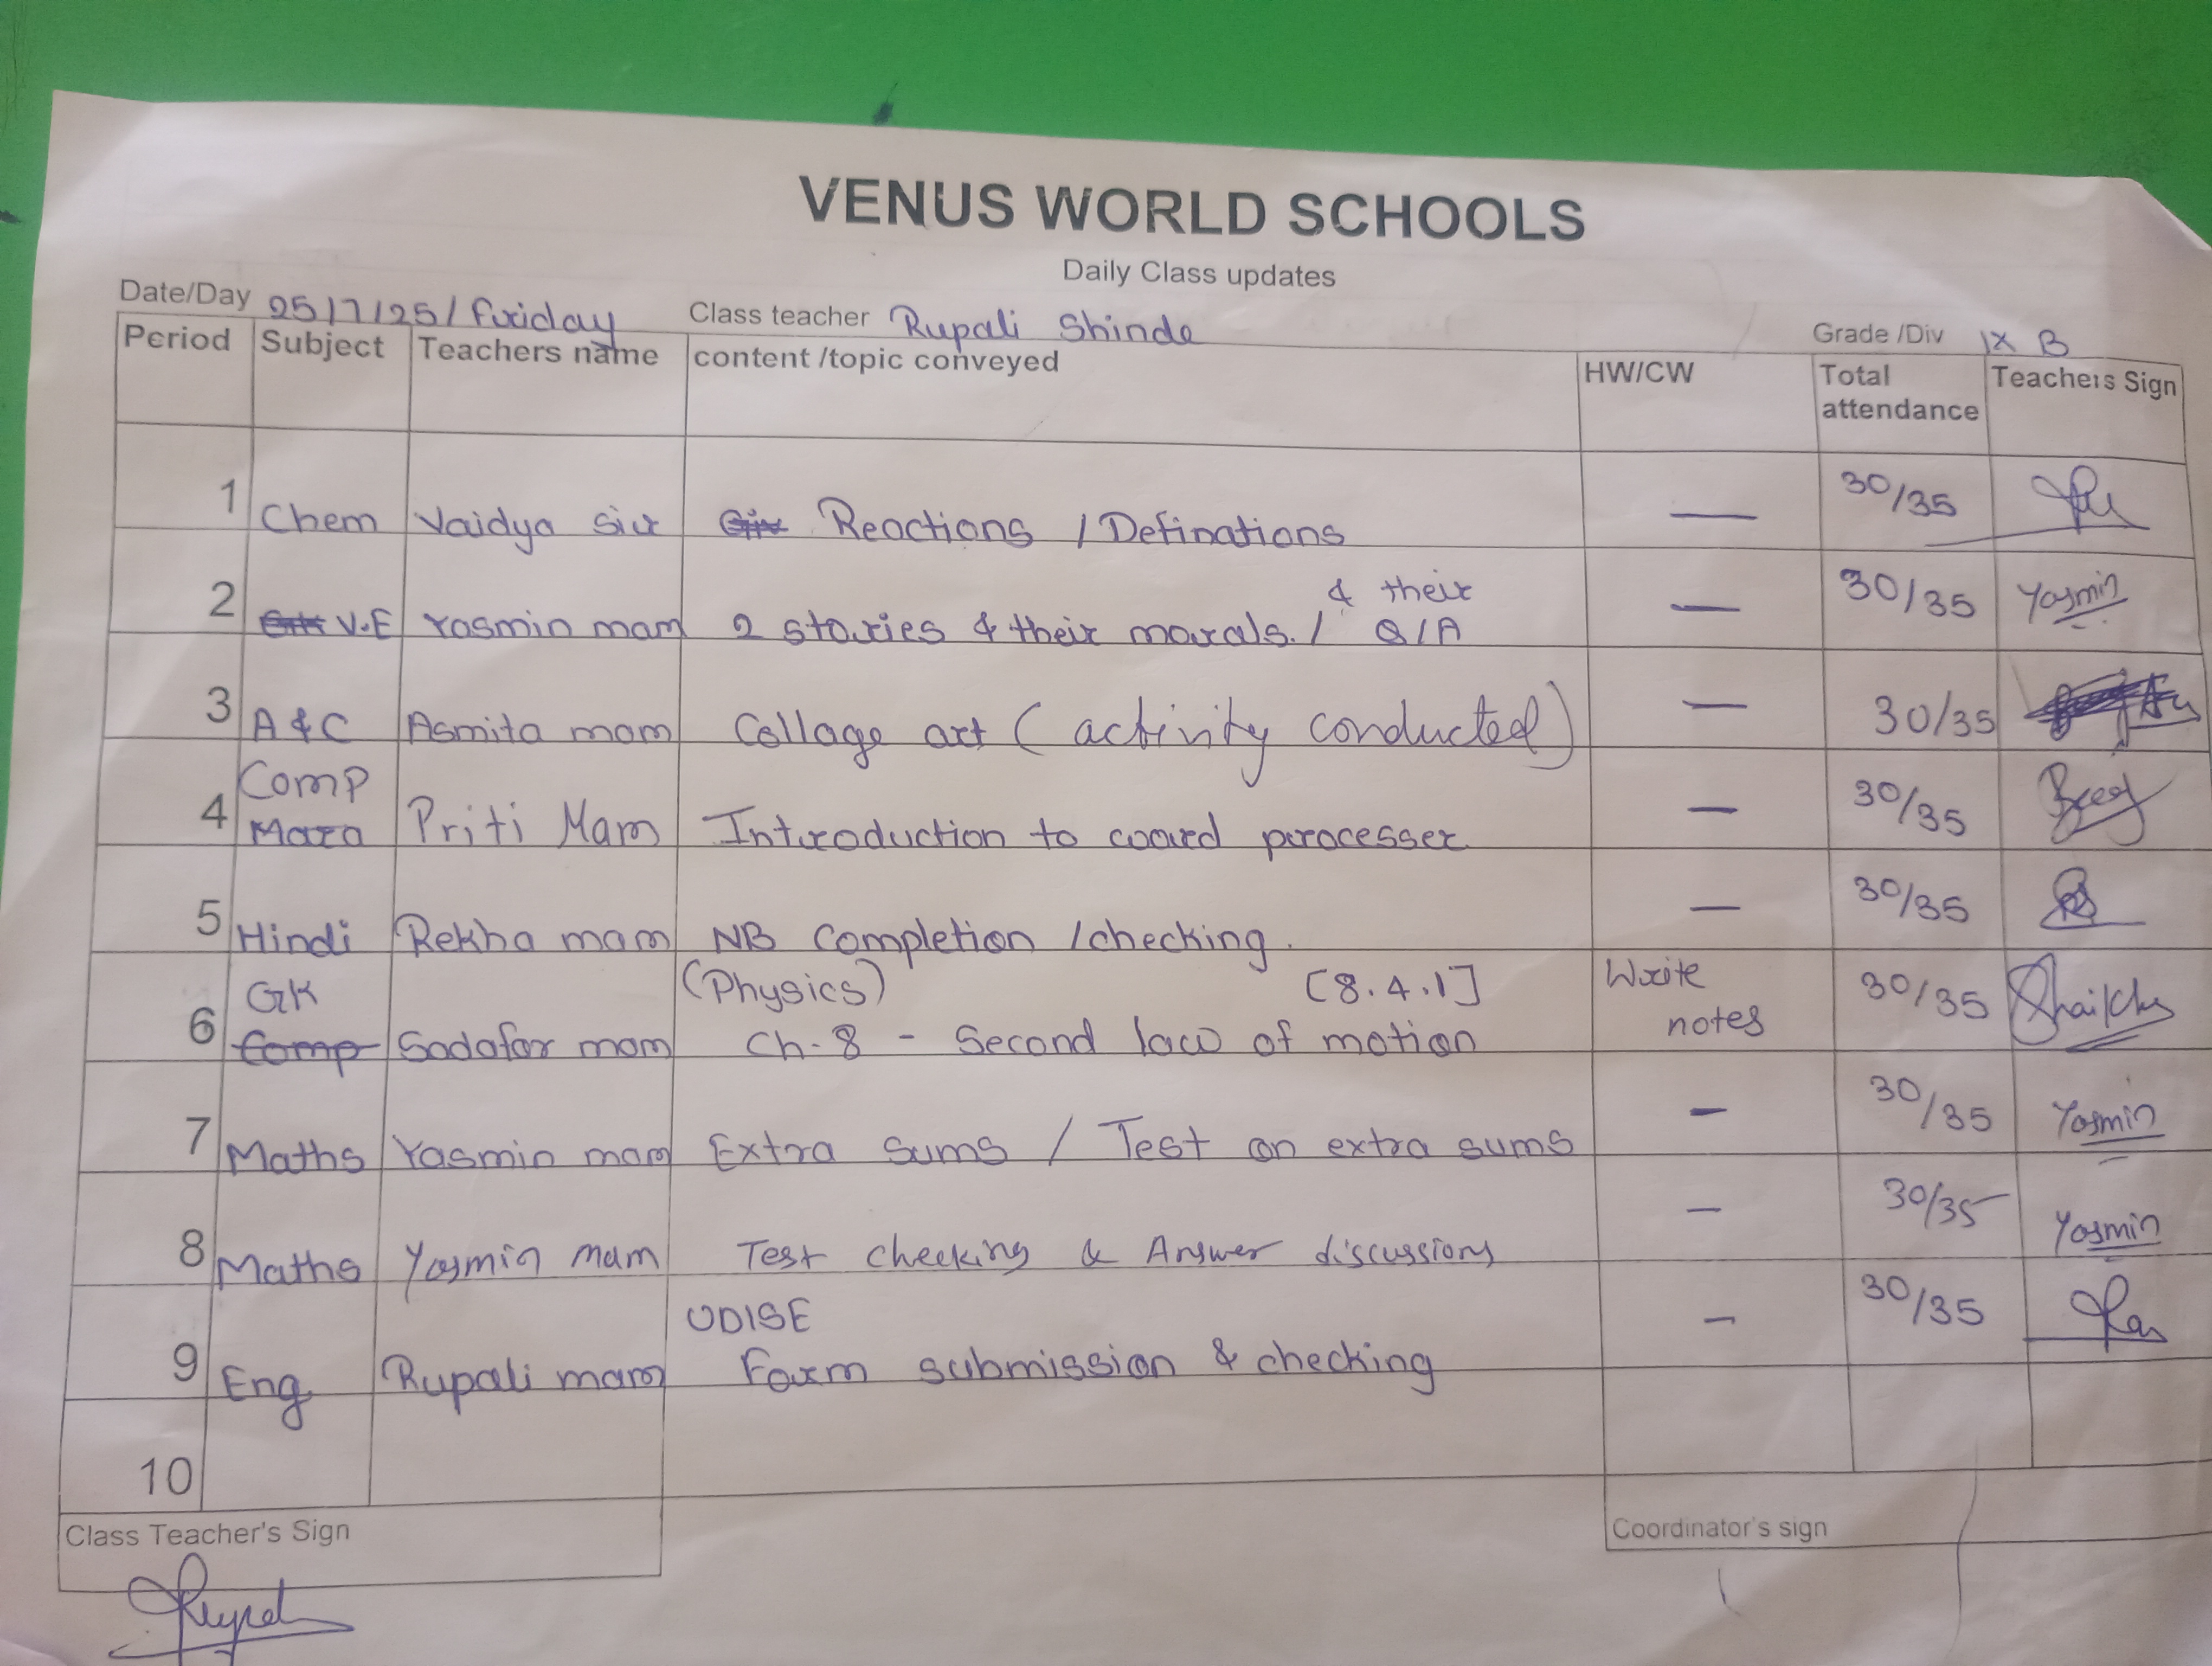 VENUS WORLD SCHOOLS
Daily Class updates
Date/Day 25/7/25/ friday Class teacher Rupali Shinde Grade /Div IX B
Period Subject Teachers name content /topic conveyed HW/CW Total attendance Teachers Sign
1 Chem Vaidya sir Reactions / Definations — 30/35
2 V.E Yasmin mam 2 stories & their morals. / & their Q/A — 30/35 Yasmin
3 A & C Asmita mam Collage art ( activity conducted) — 30/35
4 Comp Mara Priti Mam Introduction to coard processer — 30/35
5 Hindi Rekha mam NB completion /checking. — 30/35
6 GK Comp Sadafar mam (Physics) [8.4.1] Write notes 30/35 Shaikh
Ch-8 - Second law of motion
7 Maths Yasmin mam Extra sums / Test on extra sums — 30/35 Yasmin
8 Maths Yasmin mam Test checking & Answer discussions — 30/35 Yasmin
9 Eng Rupali mam UDISE — 30/35
Form submission & checking
10
Class Teacher's Sign Coordinator's sign